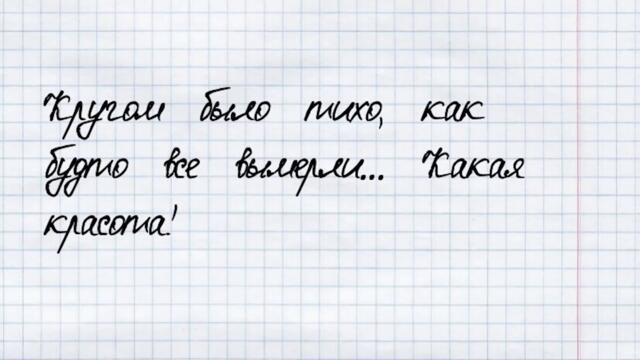 Кругом было тихо, как
будто все вымерли... Какая
красота!